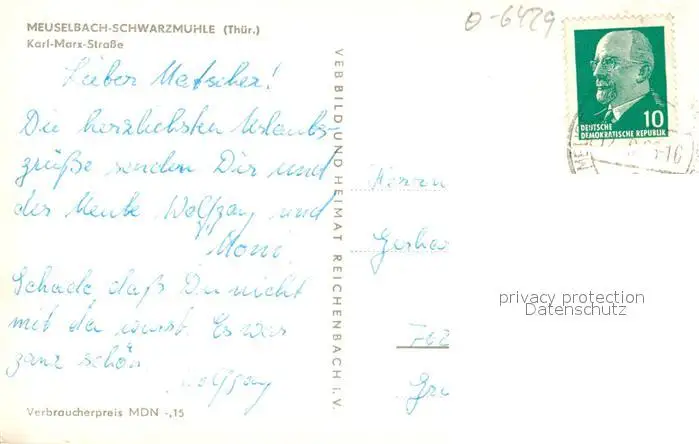 MEUSELBACH-SCHWARZMUHLE (Thür.)
Karl-Marx-Straße
Lieber Metscher!
Die herzlichsten Urlaubs-
grüße senden Dir und
der Meute Wolfgang und
Moni.
Schade, daß Du nicht
mit da warst. Es war
ganz schön.
Wolfgang
Verbraucherpreis MDN -,15
VEB BILD UND HEIMAT REICHENBACH i. V.
0-6429
10
DEUTSCHE
DEMOKRATISCHE REPUBLIK
Herrn
Gerha
702
privacy protection
Datenschutz